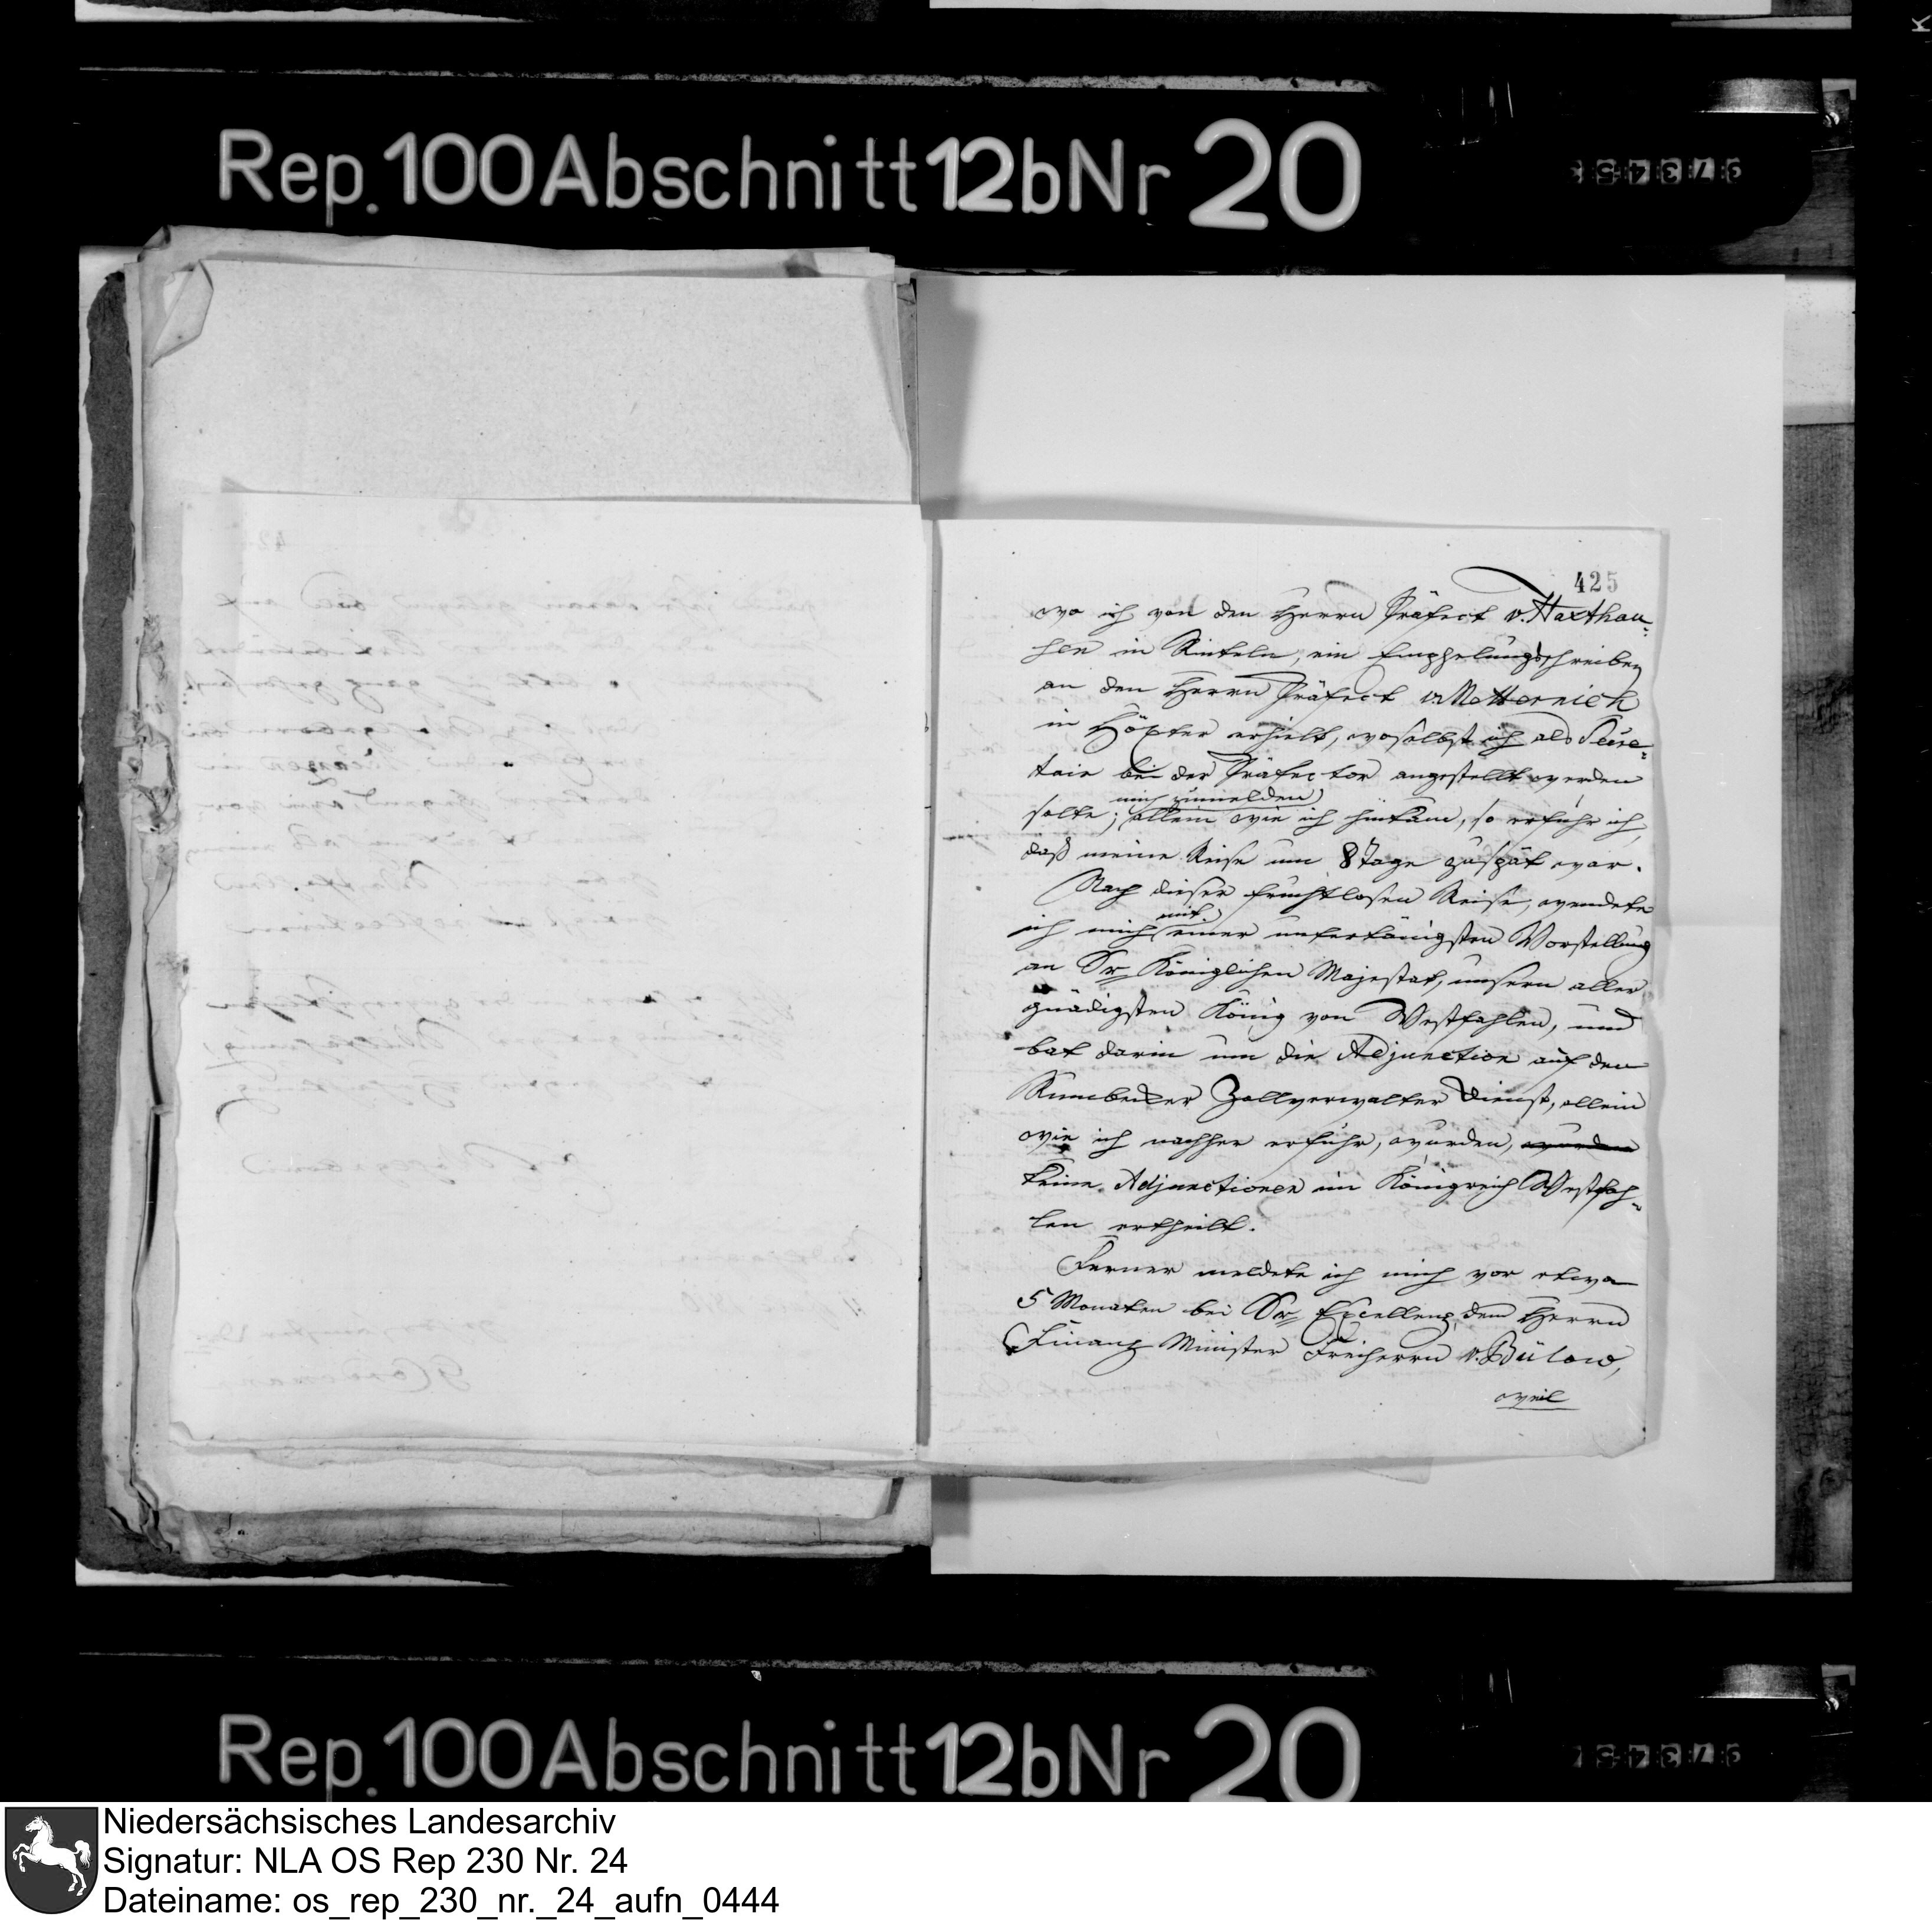 Rep. 100 Abschnitt 12b Nr 20
425
wo ich von den Herrn Präfect v. Haxthau-
sen in Rinteln, ein Emphelungsschreiben
an den Herrn Präfect v. Metternich
in Höxter erhielt, woselbst ich als Secre-
tair bei der Präfectur angestellt werden
solte; mich zumelden allein wie ich hinkam, so erfuhr ich,
daß meine Reise um 8 Tage zuspät war.
Nach dieser fruchtlosen Reise, wendete
ich mich mit einer untertänigsten Vorstellung
an Sr Königlichen Majestat, unsern aller
gnädigsten König von Westfahlen, und
bat darin um die Adjunction auf den
Rumbecker Zollverwalter Dienst, allein
wie ich nachher erfuhr, wurden, wurden
keine Adjunctionen im Königreich Westfah-
len ertheilt.
Ferner meldete ich mich vor etwa
5 Monaten bei Sr Excellenz dem Herrn
Finanz Minister Freiherrn v. Bülow,
weil
Rep. 100 Abschnitt 12b Nr 20
Niedersächsisches Landesarchiv
Signatur: NLA OS Rep 230 Nr. 24
Dateiname: os_rep_230_nr._24_aufn_0444